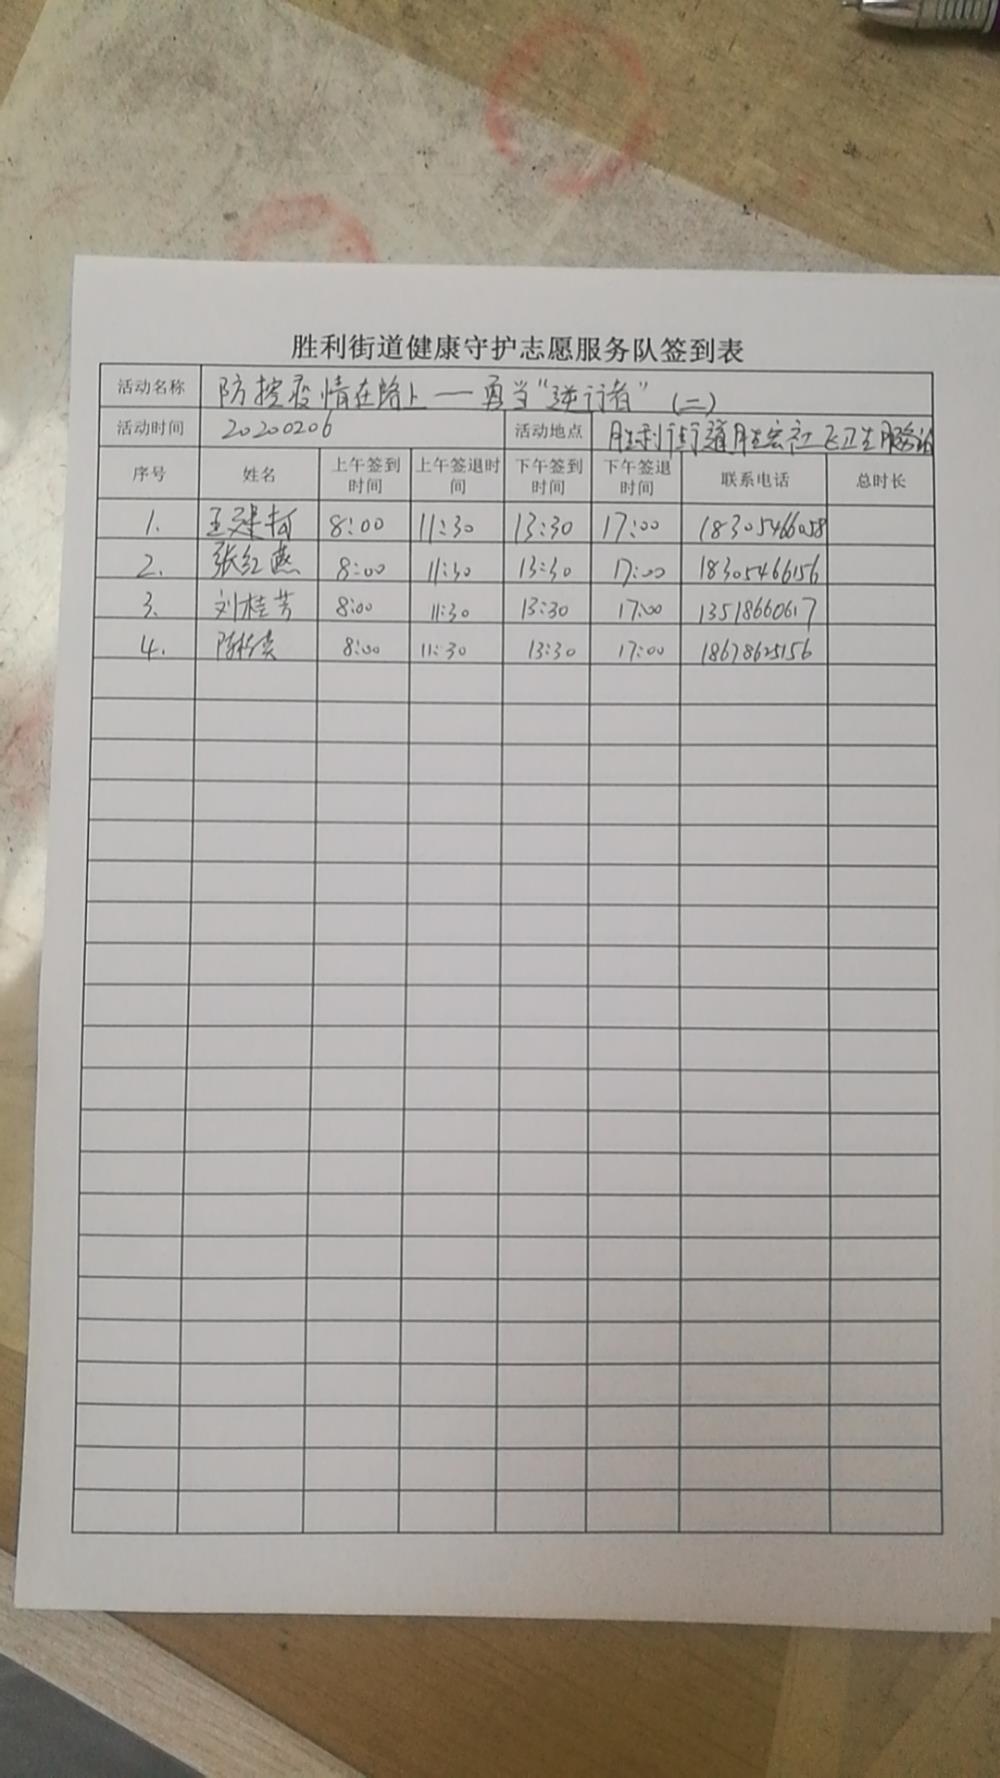 胜利街道健康守护志愿服务队签到表
活动名称 防控疫情在路上一勇当"逆行者" (二)
活动时间 20200206 活动地点 胜利街道胜宏社区卫生服务站
序号 姓名 上午签到时间 上午签退时间 下午签到时间 下午签退时间 联系电话 总时长
1. 8:00 11:30 13:30 17:00 18305466058
2. 张红燕 8:00 11:30 13:30 17:00 18305466156
3. 刘桂芳 8:00 11:30 13:30 17:00 13518660617
4. 8:00 11:30 13:30 17:00 18678625156